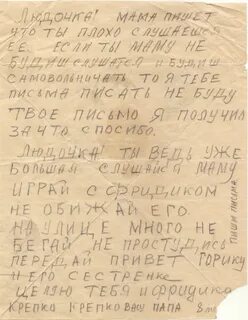 Людочка! Мама пишет
что ты плохо слушаешся
её. Если ты маму не
будиш слушатся и будиш
самовольничать то я тебе
письма писать не буду
твое письмо я получил
за что спосибо.
Людочка! Ты ведь уже
большая слушайся маму
играй с Фридиком
не обижай его
на улице много не
бегай не простудись
передай привет Горику
и его сестренке
целую тебя и Фридика
крепко крепко ваш папа
пиши письма